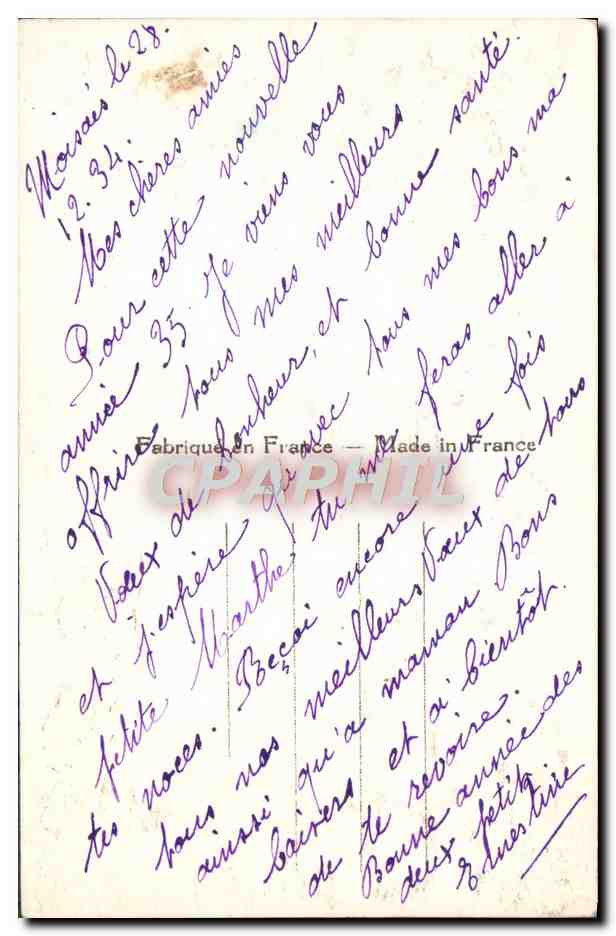 Moisdes le 28.
12.34.
Mes chères amies
Pour cette nouvelle
année 35 Je viens vous
offrire tous mes meilleurs
Vœux de bonheur, et bonne santé.
et j'espère qu'avec tous mes bons ma
petite Marthe tu me feras aller à
tes noces. Reçoi encore une fois
tous nos meilleurs Vœux de tous
ainssi qu'a maman Bons
baisers et a bientôt.
de te revoire.
Bonne année des
deux petits
Ernestine
Fabriqué en France — Made in France
CPAPHIL